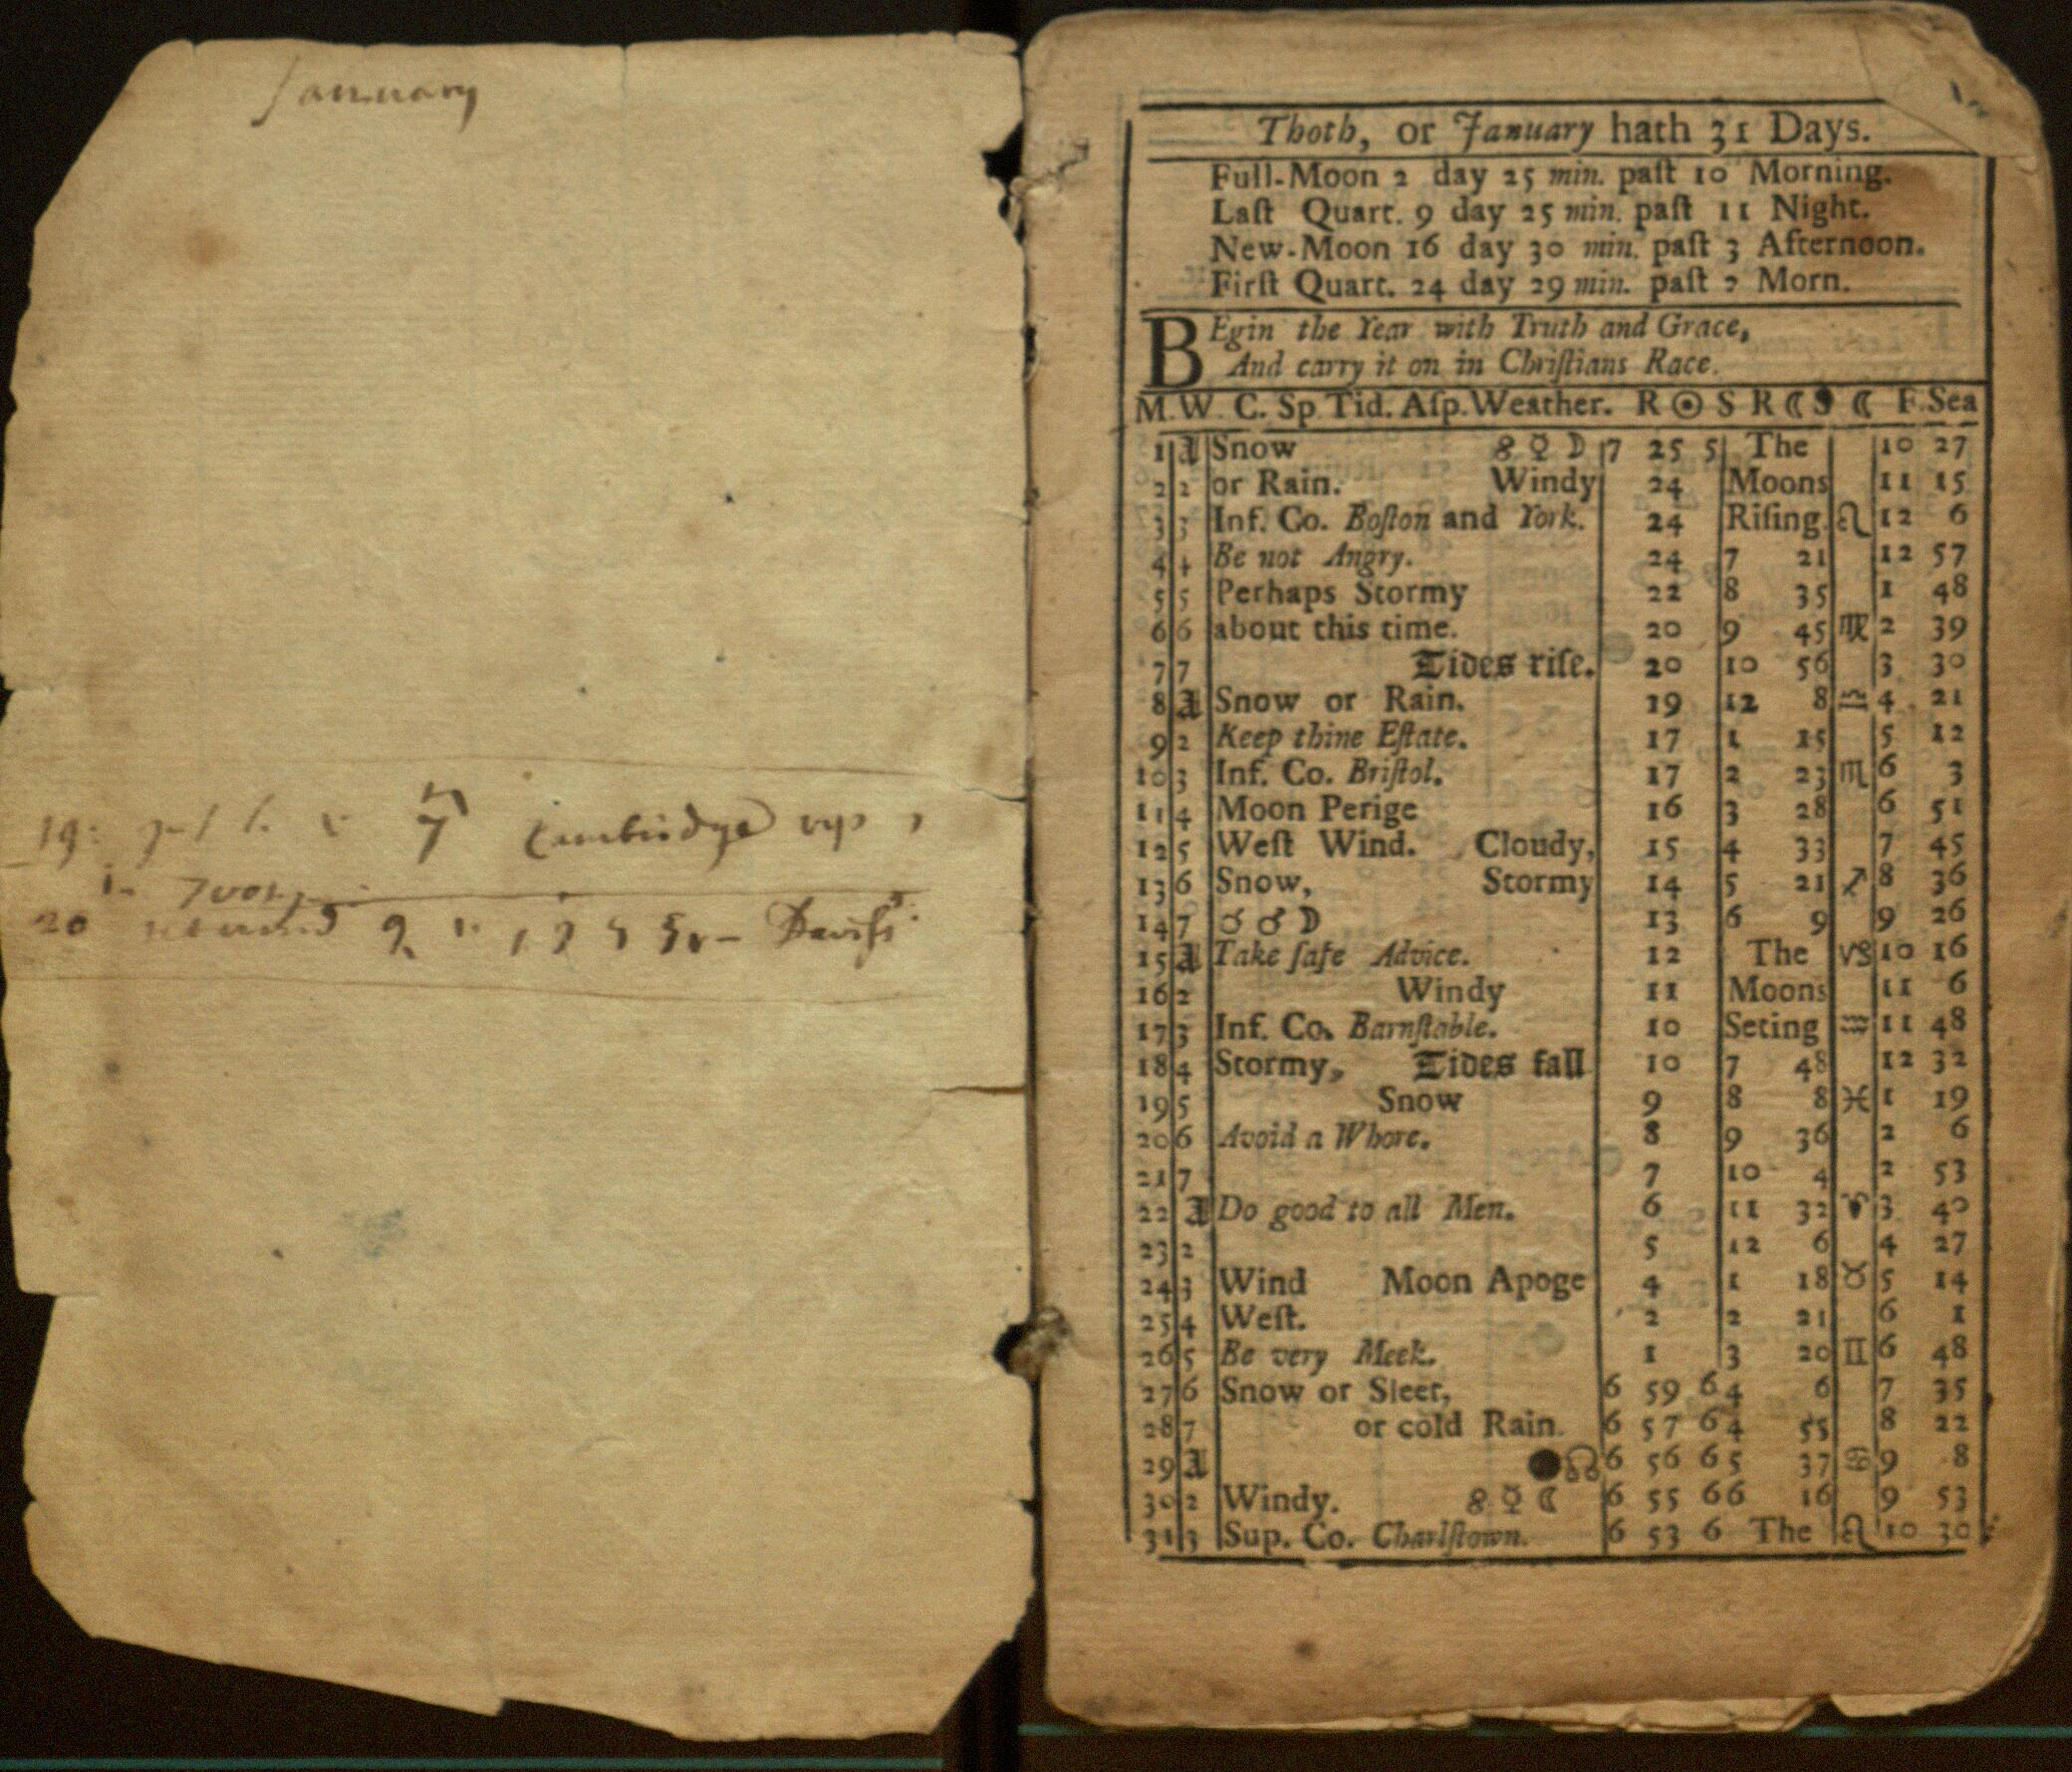 January
19: 7 Cambridge
20 returnd 9 Davis's
Thoth, or January hath 31 Days.
Full-Moon 2 day 25 min. paſt 10 Morning.
Laſt Quart. 9 day 25 min. paſt 11 Night.
New-Moon 16 day 30 min. paſt 3 Afternoon.
Firſt Quart. 24 day 29 min. paſt 2 Morn.
BEgin the Year with Truth and Grace,
And carry it on in Chriſtians Race.
M. W. C. Sp Tid. Aſp. Weather. R ☉ S R ☾ S ☾ F. Sea
1 a Snow ☍ ☿ ☽ 7 25 5 The 10 27
2 2 or Rain. Windy 24 Moons 11 15
3 3 Inf. Co. Boſton and York. 24 Riſing. ♌ 12 6
4 4 Be not Angry. 24 7 21 12 57
5 5 Perhaps Stormy 22 8 35 1 48
6 6 about this time. 20 9 45 ♍ 2 39
7 7 Tides riſe. 20 10 56 3 30
8 a Snow or Rain. 19 12 8 ♎ 4 21
9 2 Keep thine Eſtate. 17 1 15 5 12
10 3 Inf. Co. Briſtol. 17 2 23 ♏ 6 3
11 4 Moon Perige 16 3 28 6 51
12 5 Weſt Wind. Cloudy, 15 4 33 7 45
13 6 Snow, Stormy 14 5 21 ♐ 8 36
14 7 ☌ ♂ ☽ 13 6 9 9 26
15 a Take ſafe Advice. 12 The ♑ 10 16
16 2 Windy 11 Moons 11 6
17 3 Inf. Co. Barnſtable. 10 Seting ♒ 11 48
18 4 Stormy, Tides fall 10 7 48 12 32
19 5 Snow 9 8 8 ♓ 1 19
20 6 Avoid a Whore. 8 9 36 2 6
21 7 7 10 4 2 53
22 a Do good to all Men. 6 11 32 ♈ 3 40
23 2 5 12 6 4 27
24 3 Wind Moon Apoge 4 1 18 ♉ 5 14
25 4 Weſt. 2 2 21 6 1
26 5 Be very Meek. 1 3 20 ♊ 6 48
27 6 Snow or Sleet, 6 59 6 4 6 7 35
28 7 or cold Rain. 6 57 6 4 55 8 22
29 a ● ☊ 6 56 6 5 37 ♋ 9 8
30 2 Windy. ☍ ☿ ☾ 6 55 6 6 16 9 53
31 3 Sup. Co. Charlſtown. 6 53 6 The ♌ 10 30